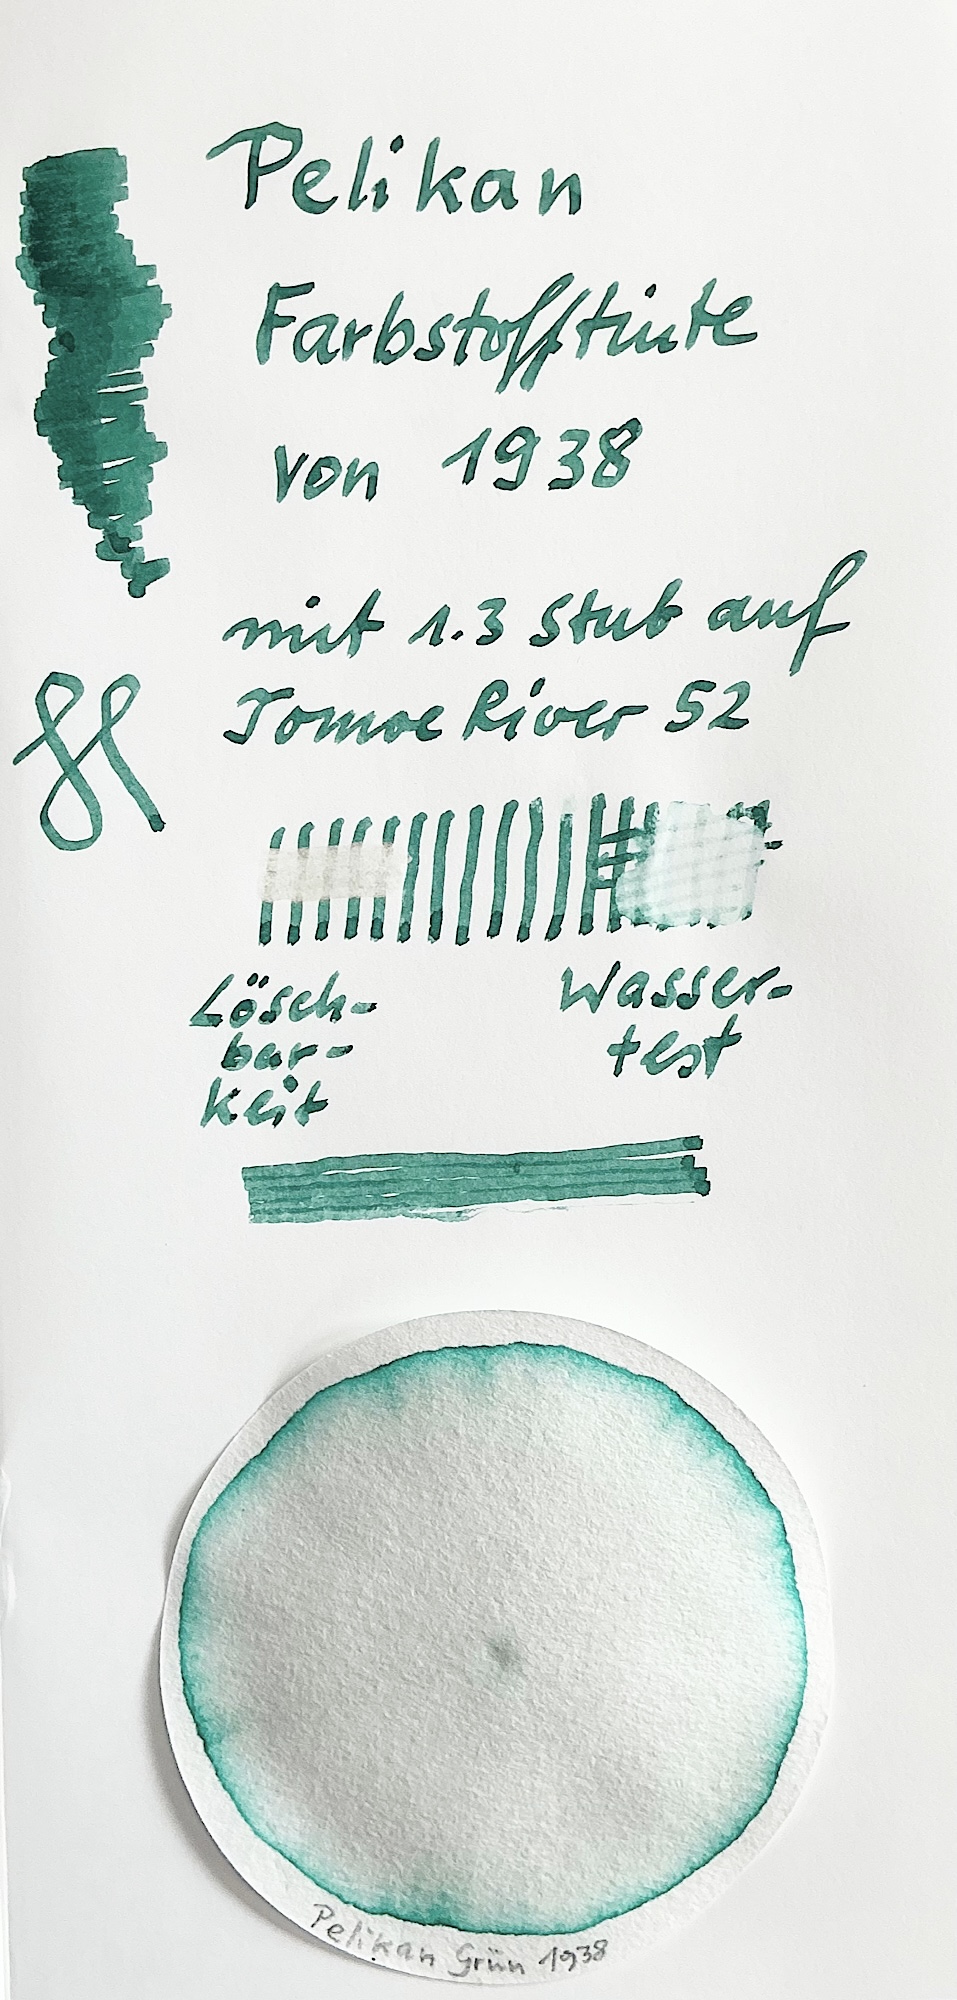 Pelikan
Farbstofftinte
von 1938
mit 1.3 Stub auf
Tomoe River 52
Lösch-
bar-
keit
Wasser-
test
Pelikan Grün 1938